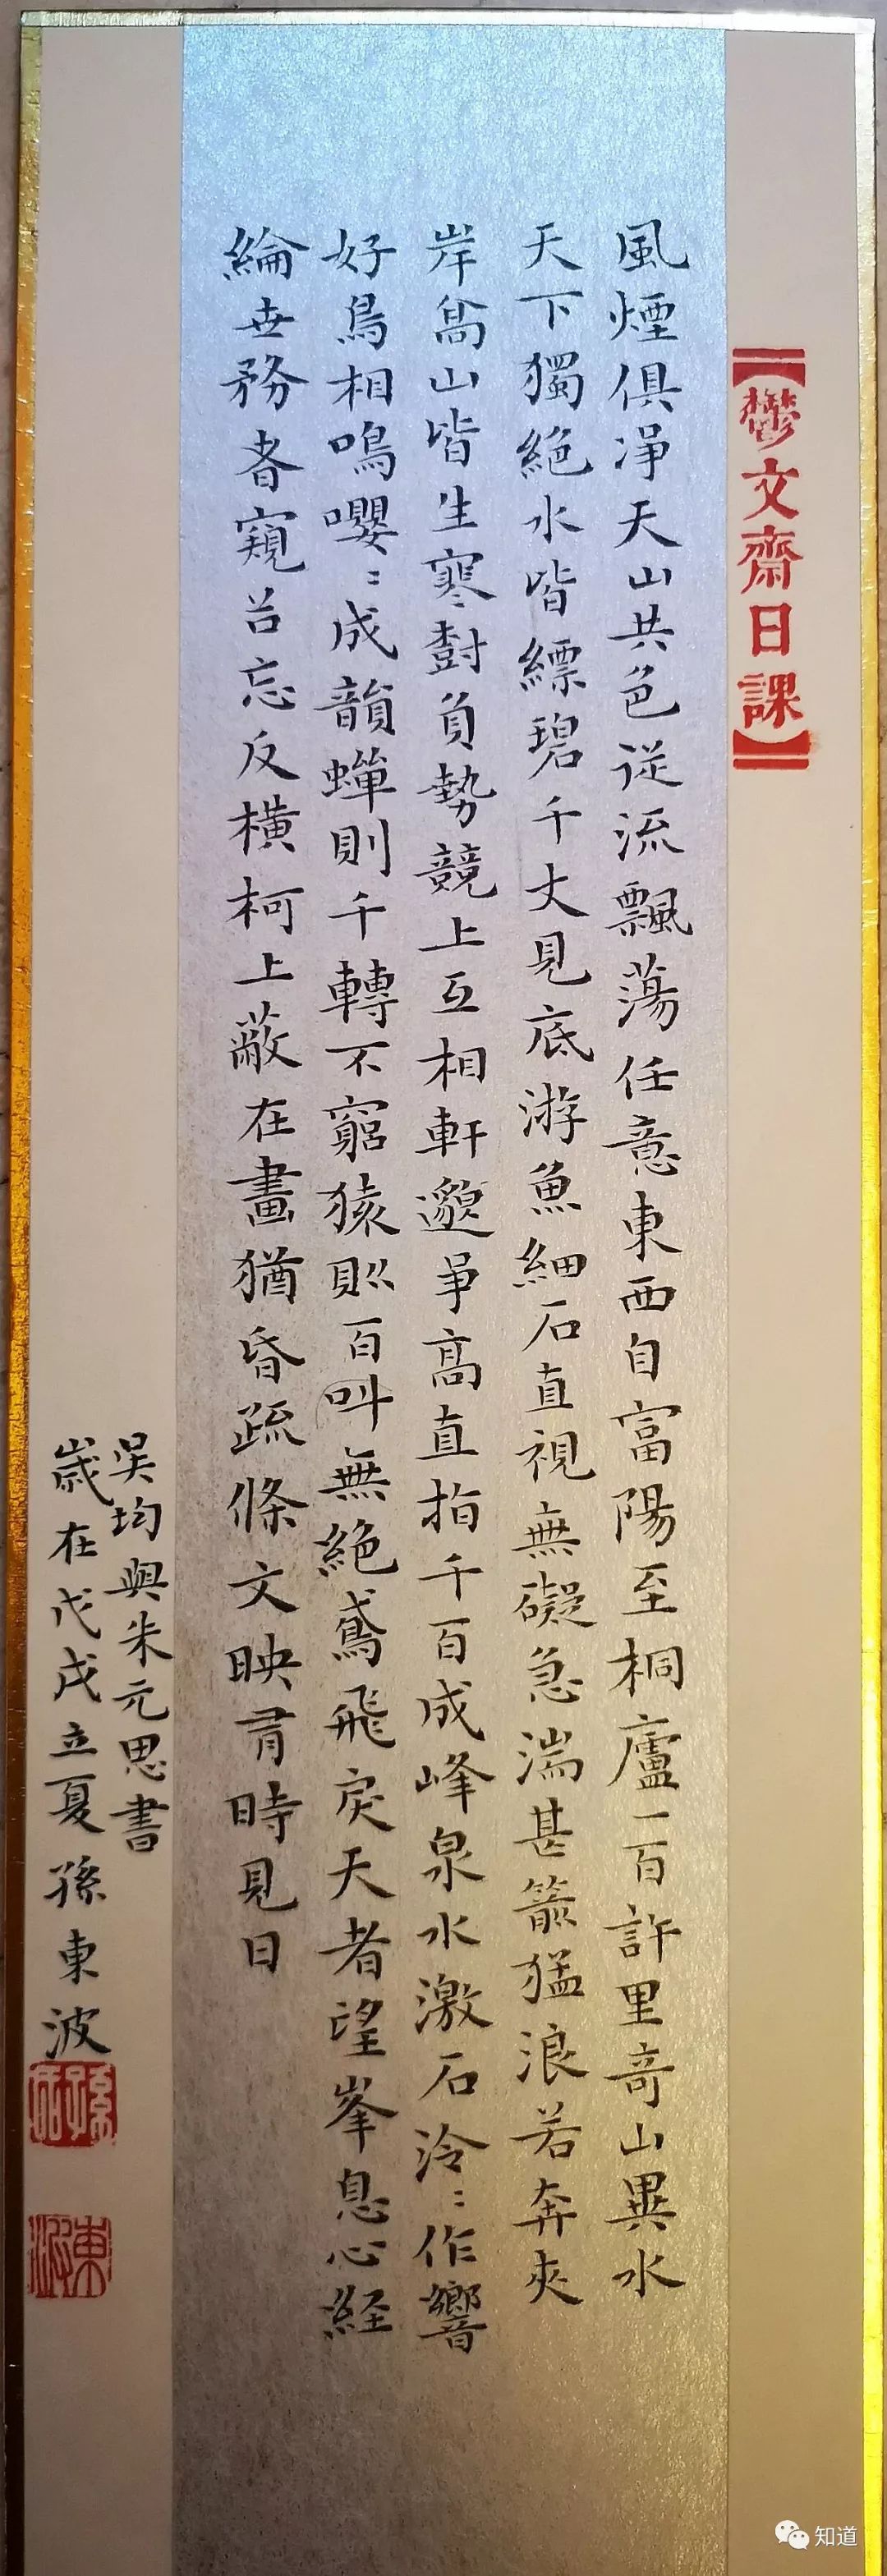 【鬱文齋日課】
風煙俱凈天山共色從流飄蕩任意東西自富陽至桐廬一百許里奇山異水
天下獨絕水皆縹碧千丈見底游魚細石直視無礙急湍甚箭猛浪若奔夾
岸高山皆生寒樹負勢競上互相軒邈爭高直指千百成峰泉水激石泠〻作響
好鳥相鳴嚶〻成韻蟬則千轉不窮猿則百叫無絕鳶飛戾天者望峯息心經
綸世務者窺谷忘反橫柯上蔽在晝猶昏疏條交映有時見日
吳均與朱元思書
歲在戊戌立夏孫東波
知道